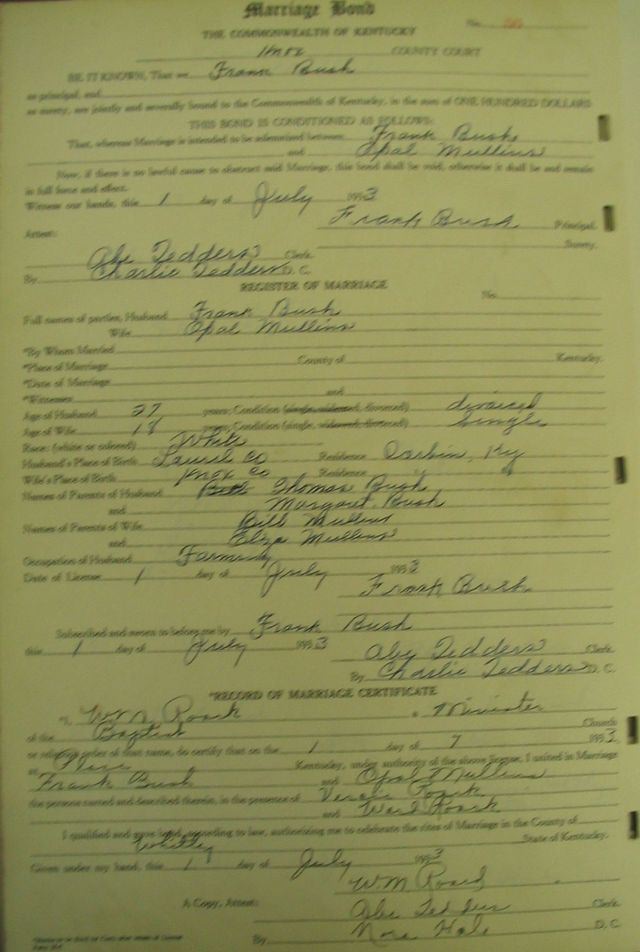 Marriage Bond
No.
THE COMMONWEALTH OF KENTUCKY
Knox COUNTY COURT
BE IT KNOWN, That we Frank Bush
as principal, and
as surety, are jointly and severally bound to the Commonwealth of Kentucky, in the sum of ONE HUNDRED DOLLARS
THIS BOND IS CONDITIONED AS FOLLOWS:
That, whereas Marriage is intended to be solemnized between Frank Bush
and Opal Mullins
Now, if there is no lawful cause to obstruct said Marriage, this bond shall be void, otherwise it shall be and remain
in full force and effect.
Witness our hands, this 1 day of July 1953
Frank Bush Principal.
Attest: Surety.
Abe Tedders Clerk.
By Charlie Tedders D. C.
REGISTER OF MARRIAGE
No.
Full names of parties, Husband Frank Bush
Wife Opal Mullins
*By Whom Married
*Place of Marriage County of Kentucky.
*Date of Marriage
*Witnesses and
Age of Husband 27 years; Condition (single, widowed, divorced) divorced
Age of Wife 18 years; Condition (single, widowed, divorced) single
Race: (white or colored) White
Husband's Place of Birth Laurel Co Residence Corbin, Ky
Wife's Place of Birth Knox Co Residence "
Names of Parents of Husband Thomas Bush
and Margaret Bush
Names of Parents of Wife Bill Mullins
and Eliza Mullins
Occupation of Husband Farming
Date of License 1 day of July 1953
Frank Bush
Subscribed and sworn to before me by Frank Bush
this 1 day of July 1953
Abe Tedders Clerk.
By Charlie Tedders D. C.
*RECORD OF MARRIAGE CERTIFICATE
I, WM Roark a Minister
of the Baptist Church
or religious order of that name, do certify that on the 1 day of 7 1953
at Kentucky, under authority of the above license, I united in Marriage
Frank Bush and Opal Mullins
the persons named and described therein, in the presence of
and Roark
I qualified and gave bond, according to law, authorizing me to celebrate the rites of Marriage in the County of
Whitley State of Kentucky.
Given under my hand, this 1 day of July 1953
WM Roark
A Copy, Attest: Abe Tedders Clerk
By Nora Hale D. C.